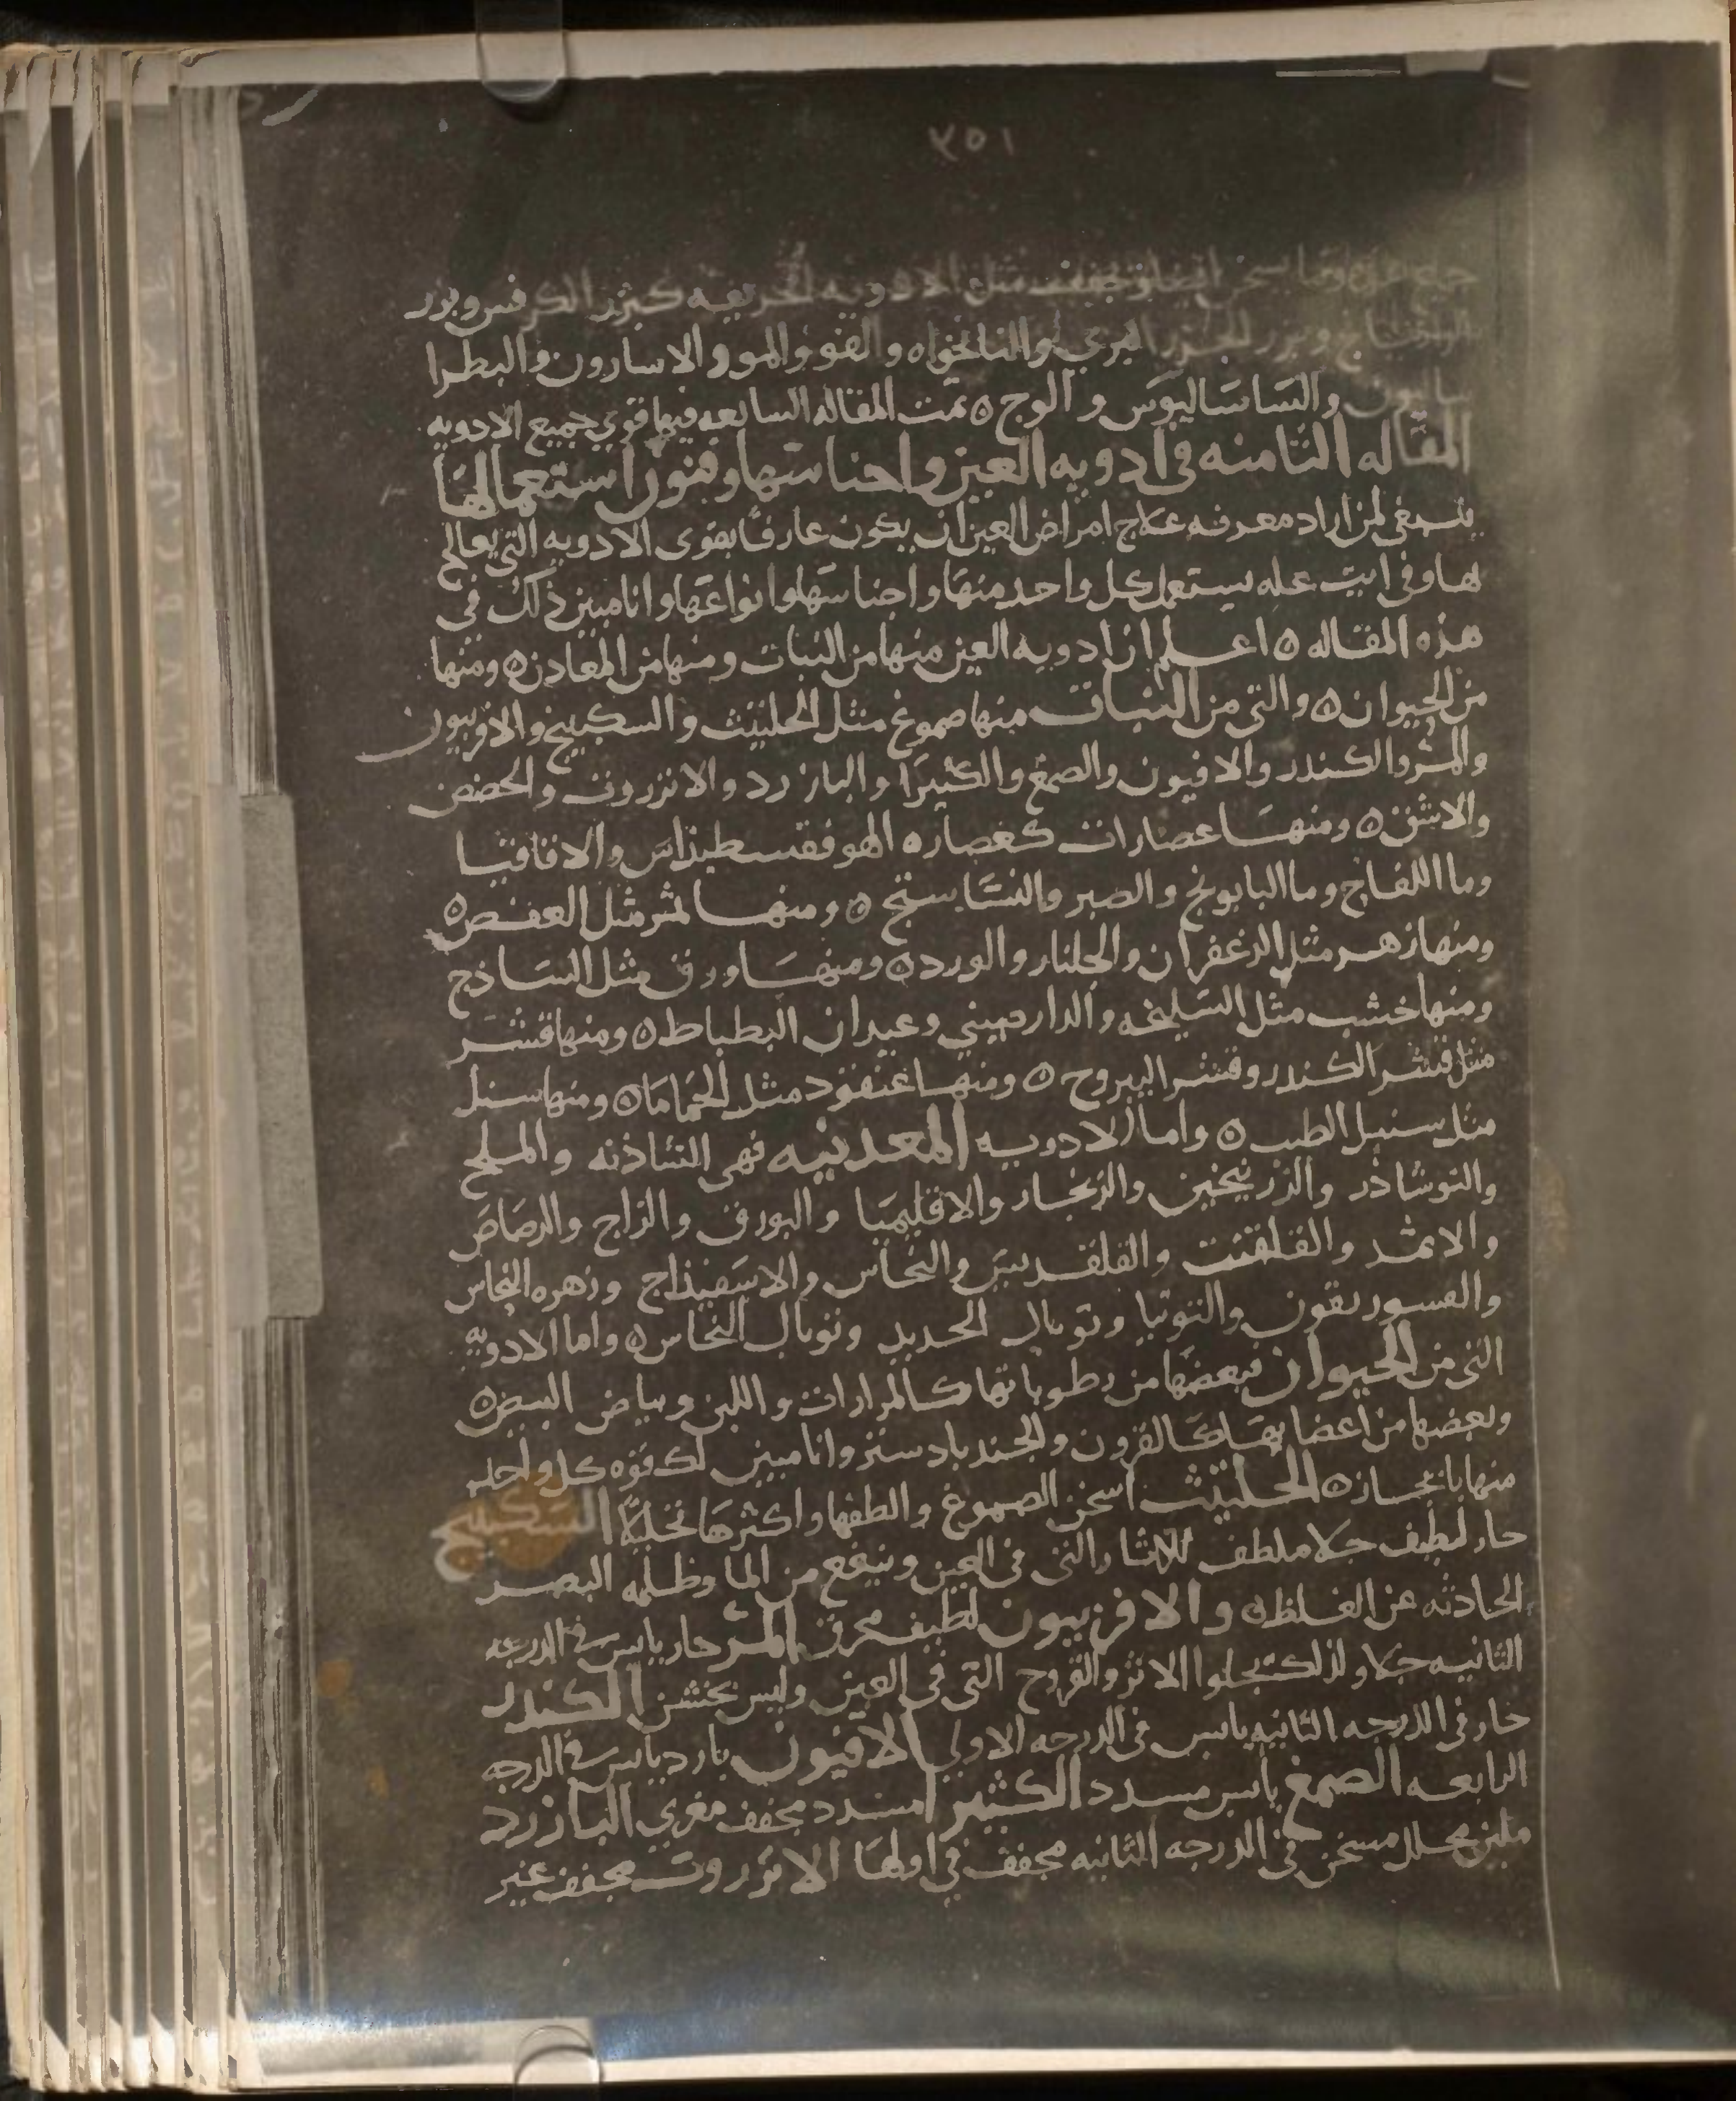 ٣٥١
ايضا وتجفف مثل الادويه الحريفه كبزر الكرفس وبزر
وبزر الجزر البري والنانخواه والفو والمو والاسارون والبطرا
ساليون والساساليوس والوج ٥ تمت المقاله السابعه فيها قوي جميع الادويه
المقاله الثامنه في ادويه العين واجناسها وفنون استعمالها
ينبغي لمن اراد معرفه علاج امراض العين ان يكون عارفا بقوي الادويه التي يعالج
بها وفي ايت عله يستعمل كل واحد منها واجناسها وانواعها وانا مبين ذلك في
هذه المقاله ٥ اعلم ان ادويه العين منها من النبات ومنها من المعادن ٥ ومنها
من الحيوان ٥ والتي من النبات منها صموغ مثل الحلتيت والسكبينج والافربيون
والمر والكندر والافيون والصمغ والكثيرا والبازرد والانزروت والحضض
والاشق ٥ ومنها عصارات كعصاره الهوفقسطيذاس والاقاقيا
وما اللفاح وما البابونج والصبر والنشاستج ٥ ومنها ثمر مثل العفص ٥
ومنها زهر مثل الزعفران والجلنار والورد ٥ ومنها ورق مثل الساذج
ومنها خشب مثل السليخه والدارصيني وعيدان البطباط ٥ ومنها قشر
مثل قشر الكندر وقشر اليبروح ٥ ومنها عنقود مثل الحماما ٥ ومنها سنبل
مثل سنبل الطيب ٥ واما الادويه المعدنيه فهي الشاذنه والملح
والنوشاذر والزرنيخين والزنجار والاقليميا والبورق والزاج والرصاص
والاثمد والقلقنت والقلقديس والنحاس والاسفيذاج وزهره النحاس
والفسوريقون والتوتيا وتوبال الحديد وتوبال النحاس ٥ واما الادويه
التي من الحيوان فبعضها من رطوباتها كالمرارات واللبن وبياض البيض ٥
وبعضها من اعضايها كالقرون والجندبادستر وانا مبين لك قوه كل واحد
منها بايجاز ٥ الحلتيت اسخن الصموغ والطفها واكثرها تحليلا السكبينج
حار لطيف جلا ملطف للاثار التي في العين وينفع من الما وظلمه البصر
الحادثه عن الغلظ ٥ والافربيون لطيف محرق المر حار يابس في الدرجه
الثانيه جلا ولذلك يجلوا الاثر والقروح التي في العين وليس بخشن الكندر
حار في الدرجه الثانيه يابس في الدرجه الاولي الافيون بارد يابس في الدرجه
الرابعه الصمغ يابس مسدد الكثيرا مسدد مجفف مغري البازرد
ملين محلل مسخن في الدرجه الثانيه مجفف في اولها الانزروت مجفف غير